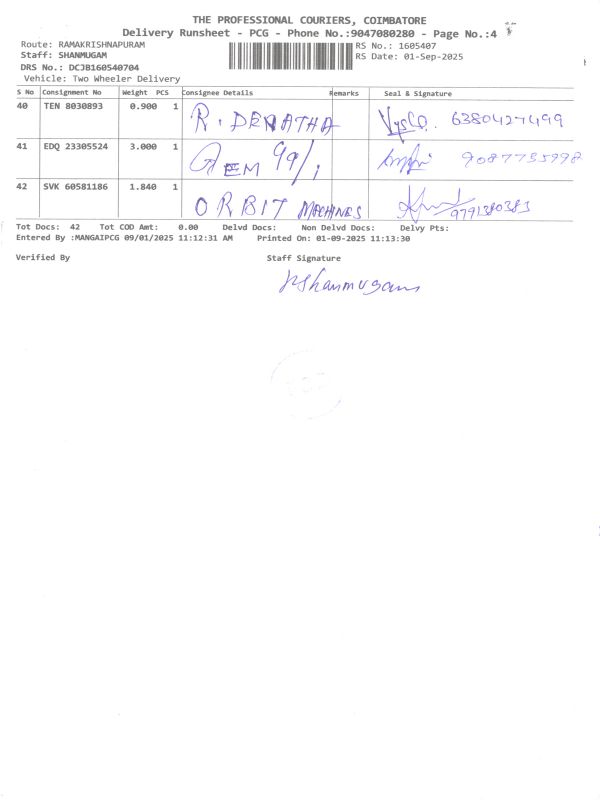 THE PROFESSIONAL COURIERS, COIMBATORE
Delivery Runsheet - PCG - Phone No.:9047080280 - Page No.:4
Route: RAMAKRISHNAPURAM
RS No.: 1605407
Staff: SHANMUGAM
RS Date: 01-Sep-2025
DRS No.: DCJB160540704
Vehicle: Two Wheeler Delivery
S No Consignment No Weight PCS Consignee Details Remarks Seal & Signature
40 TEN 8030893 0.900 1 R. DENATHA 6380427499
41 EDQ 23305524 3.000 1 GEM 99/1 9087755998
42 SVK 60581186 1.840 1 ORBIT MACHINES 9791380383
Tot Docs: 42 Tot COD Amt: 0.00 Delvd Docs: Non Delvd Docs: Delvy Pts:
Entered By :MANGAIPCG 09/01/2025 11:12:31 AM Printed On: 01-09-2025 11:13:30
Verified By Staff Signature
Shanmugam